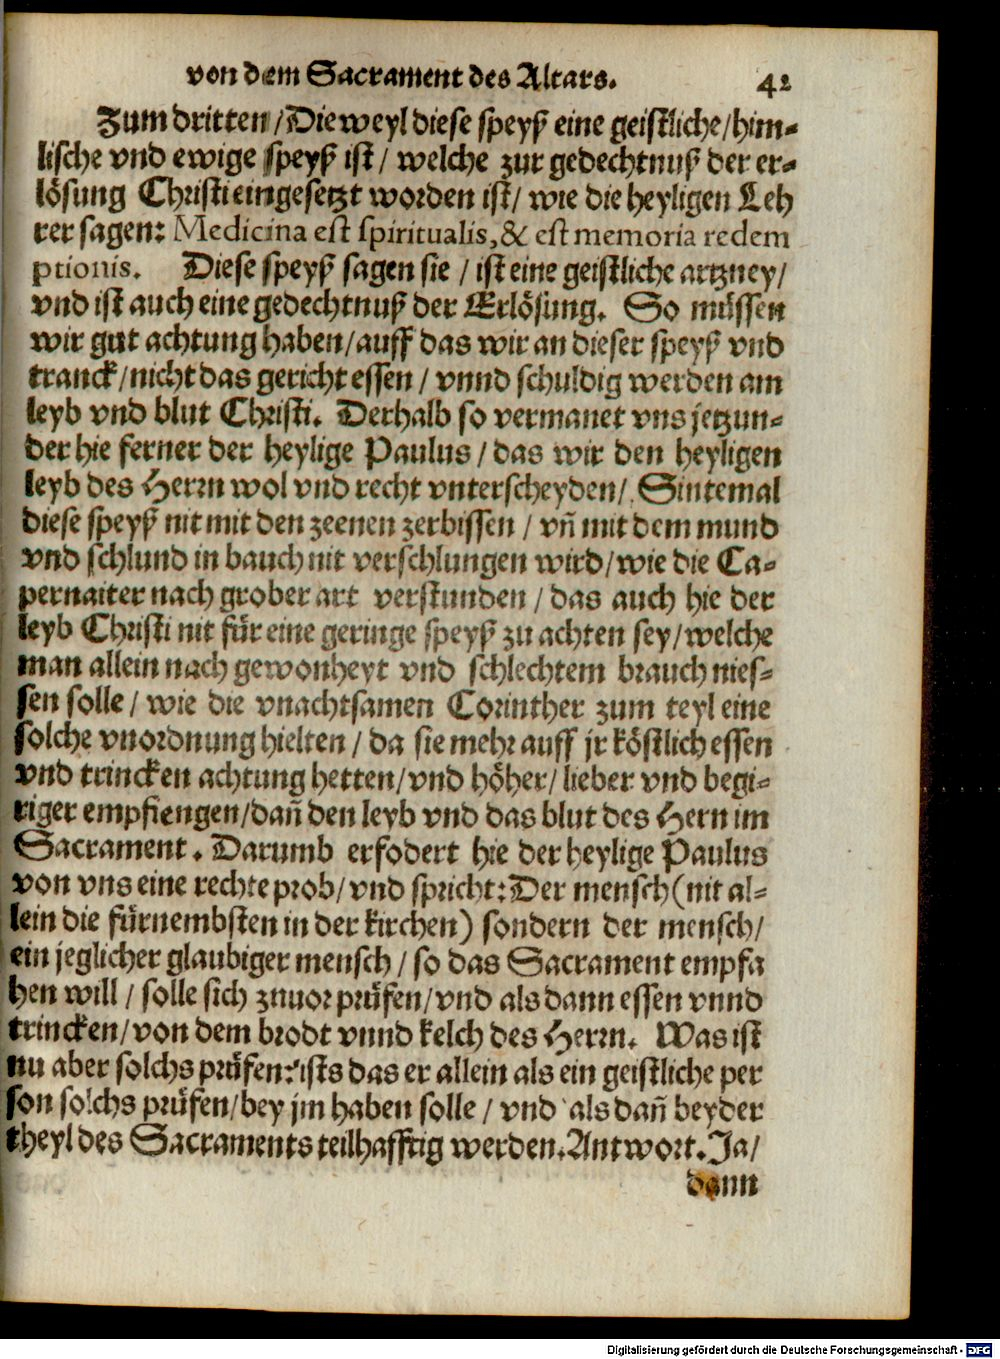 von dem Sacrament des Altars. 42
Zum dritten / Die weyl diese speyß eine geistliche / him-
lische vnd ewige speyß ist / welche zur gedechtnuß der er-
lösung Christi eingesetzt worden ist / wie die heyligen Leh
rer sagen: Medicina est spiritualis, & est memoria redem
ptionis. Diese speyß sagen sie / ist eine geistliche artzney /
vnd ist auch eine gedechtnuß der Erlösung. So müssen
wir gut achtung haben / auff das wir an dieser speyß vnd
tranck / nicht das gericht essen / vnnd schuldig werden am
leyb vnd blut Christi. Derhalb so vermanet vns jetzun-
der hie ferner der heylige Paulus / das wir den heyligen
leyb des Herrn wol vnd recht vnterscheyden / Sintemal
diese speyß nit mit den zeenen zerbissen / vñ mit dem mund
vnd schlund in bauch nit verschlungen wird / wie die Ca-
pernaiter nach grober art verstunden / das auch hie der
leyb Christi nit für eine geringe speyß zu achten sey / welche
man allein nach gewonheyt vnd schlechtem brauch nies-
sen solle / wie die vnachtsamen Corinther zum teyl eine
solche vnordnung hielten / da sie mehr auff jr köstlich essen
vnd trincken achtung hetten / vnd höher / lieber vnd begi-
riger empfiengen / dañ den leyb vnd das blut des Hern im
Sacrament. Darumb erfodert hie der heylige Paulus
von vns eine rechte prob / vnd spricht: Der mensch (nit al-
lein die fürnembsten in der kirchen) sondern der mensch /
ein jeglicher glaubiger mensch / so das Sacrament empfa
hen will / solle sich znuor prüfen / vnd als dann essen vnnd
trincken / von dem brodt vnnd kelch des Herrn. Was ist
nu aber solchs prüfen? ists das er allein als ein geistliche per
son solchs prüfen / bey jm haben solle / vnd als dañ beyder
theyl des Sacraments teilhafftig werden. Antwort. Ja /
dann
Digitalisierung gefördert durch die Deutsche Forschungsgemeinschaft - DFG